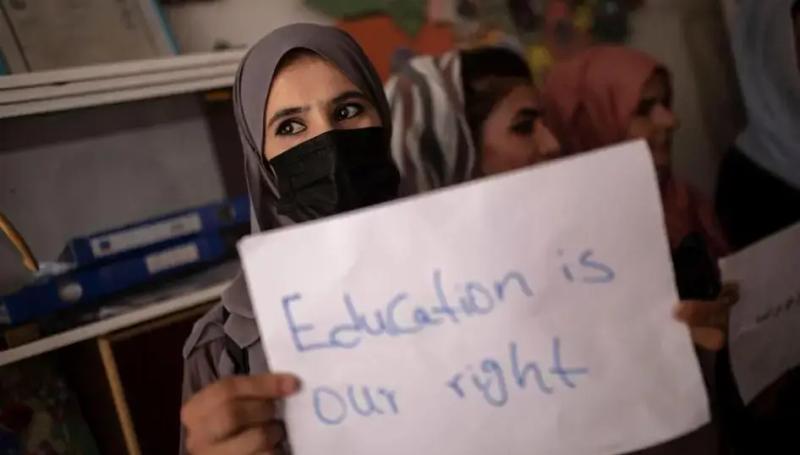 Education is
our right